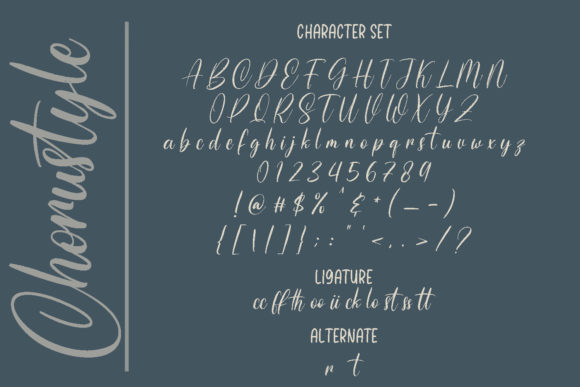 Chorustyle
CHARACTER SET
A B C D E F G H I J K L M N
O P Q R S T U V W X Y Z
a b c d e f g h i j k l m n o p q r s t u v w x y z
0 1 2 3 4 5 6 7 8 9
! @ # $ % ^ & * ( _ - )
{ [ \ | ] } ; : " ' < , . > / ?
LIGATURE
cc ff th oo ii ck lo st ss tt
ALTERNATE
r t